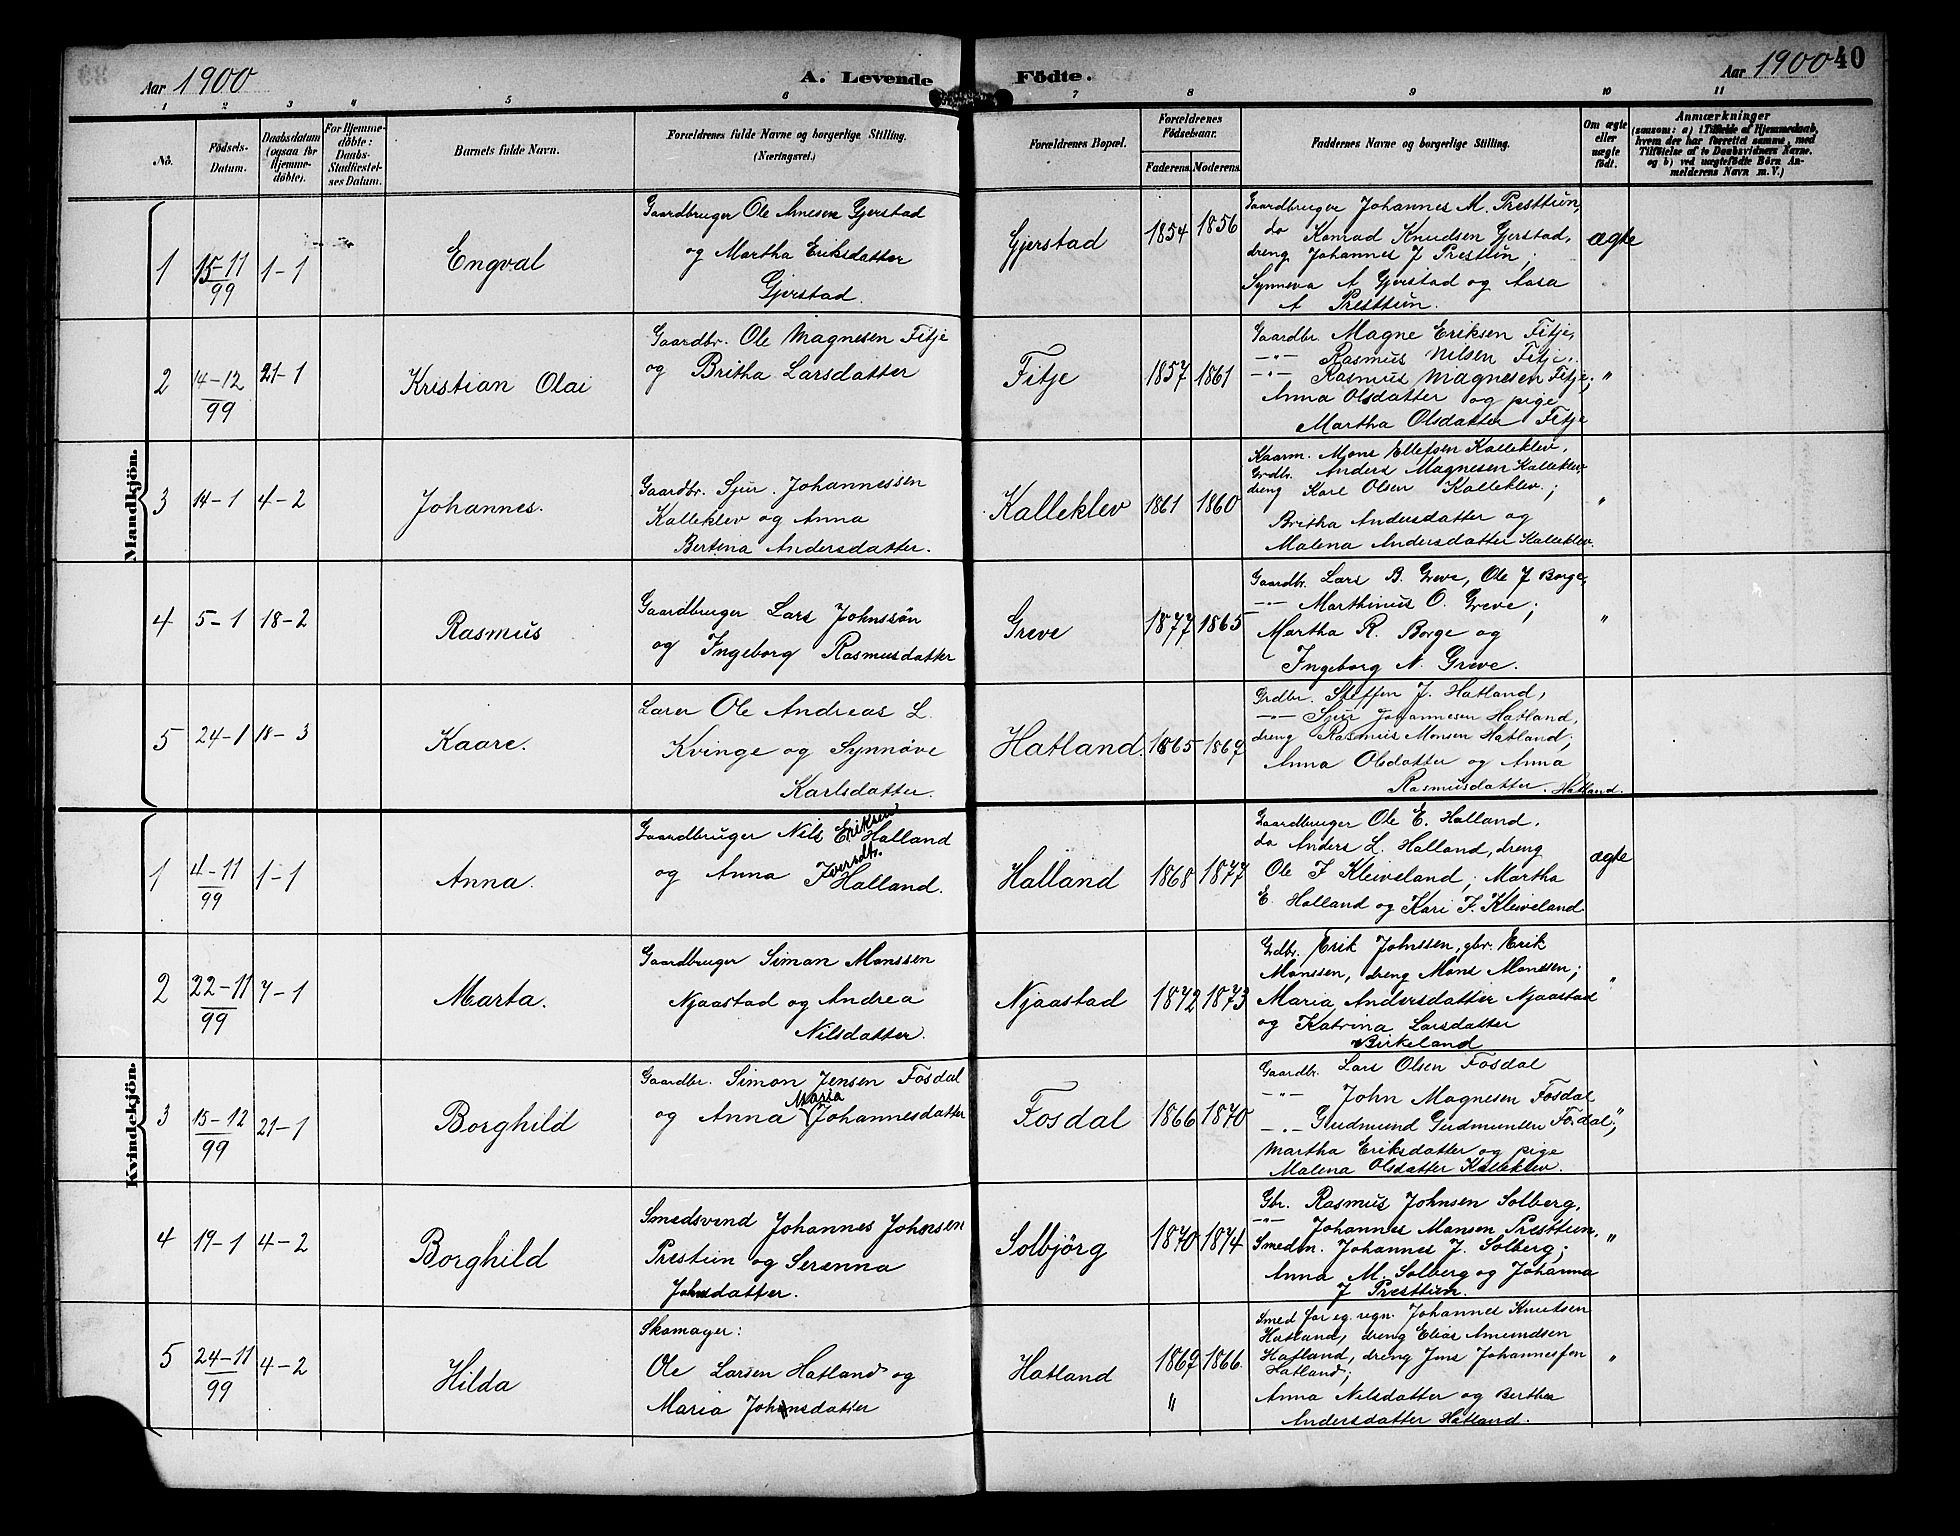 Aar 1900
A. Levende Födte.
Aar 1900
40
1 2 3 4 5 6 7 8 9 10 11
No.
Födsels-Datum.
Daabsdatum (ogsaa for Hjemme-döbte).
For Hjemme-döbte: Daabs-Stadfæstel-ses Datum.
Barnets fulde Navn.
Forældrenes fulde Navne og borgerlige Stilling.
(Næringsvei.)
Forældrenes Bopæl.
Forældrenes Födselsaar.
Faderens. Moderens.
Faddernes Navne og borgerlige Stilling.
Om ægte eller uægte födt.
Anmærkninger
(saasom: a) i Tilfælde af Hjemmedaab,
hvem der har forrettet samme, med
Tilföielse af to Daabsvidners Navne,
og b) ved uægtefödte Börn An-
melderens Navn m. V.)
Mandkjön.
1 15-11/99 1-1 Engval
Gaardbruger Ole Arnesen Gjerstad
og Martha Eriksdatter
Gjerstad.
Gjerstad 1854 1856
Gaardbruger Johannes M. Presttun,
do Konrad Knudsen Gjerstad,
dreng Johannes J Presttun;
Synneva A Gjerstad og Aasa
A Presttun.
ægte
2 14-12/99 21-1 Kristian Olai
Gaardbr. Ole Magnesen Fitje
og Britha Larsdatter
Fitje 1857 1861
Gaardbr. Magne Eriksen Fitje,
-"- Rasmus Nilsen Fitje,
-"- Rasmus Magnesen Fitje;
Anna Olsdatter og pige
Martha Olsdatter Fitje
"
3 14-1 4-2 Johannes.
Gaardbr. Sjur Johannessen
Kalleklev og Anna
Bertina Andersdatter.
Kalleklev 1861 1860
Kaarm. Mons Ellefsen Kalleklev,
Grdb. Anders Magnesen Kalleklev
dreng Karl Olsen Kalleklev;
Britha Andersdatter og
Malena Andersdatter Kalleklev.
"
4 5-1 18-2 Rasmus
Gaardbruger Lars Johnssön
og Ingeborg Rasmusdatter
Greve 1877 1865
Gaardbr. Lars B. Greve, Ole J Borge,
-"- Marthinus O. Greve;
Martha R. Borge og
Ingeborg N. Greve.
"
5 24-1 18-3 Kaare.
Lærer Ole Andreas L.
Kvinge og Synnöve
Karlsdatter.
Hatland. 1865 1867
Grdbr. Steffen J. Hatland,
-"- Sjur Johannesen Hatland,
dreng Rasmus Monsen Hatland;
Anna Olsdatter og Anna
Rasmusdatter. Hatland.
Kvindekjön.
1 4-11/99 1-1 Anna.
Gaardbruger Nils Eriksen Halland
og Anna Iversdtr. Halland.
Halland 1868 1877
Gaardbruger Ole E. Halland,
do Anders L. Halland, dreng
Ole F Kleiveland; Martha
E. Halland og Kari F. Kleiveland
ægte
2 22-11/99 7-1 Marta.
Gaardbruger Simon Monssen
Njaastad og Andrea
Nilsdatter.
Njaastad 1872 1873
Grdbr. Erik Johnssen, gbr. Erik
Monssen, dreng Mons Monssen;
Maria Andersdatter Njaastad
og Katrina Larsdatter
Birkeland
"
3 15-12/99 21-1 Borghild
Gaardbr. Simon Jensen Fosdal
og Anna Maria Johannesdatter
Fosdal 1866 1870
Gaardbr. Lars Olsen Fosdal
-"- John Magnesen Fosdal
-"- Gudmund Gudmundsen Fosdal;
Martha Eriksdatter og pige
Malena Olsdatter Kalleklev.
"
4 19-1 4-2 Borghild
Smedsvend Johannes Johnsen
Presttun og Serenna
Johnsdatter.
Solbjörg 1870 1874
Gbr. Rasmus Johnsen Solberg,
-"- Johannes Monsen Presttun,
Smedm. Johannes J. Solberg;
Anna M. Solberg og Johanna
J Presttun.
"
5 24-11/99 4-2 Hilda
Skomager:
Ole Larsen Hatland og
Maria Johnsdatter
Hatland 1867 1866.
"
Smed for eg. regn. Johannes Knutsen
Hatland, dreng Elias Amundsen
Hatland, dreng Jens Johannesson
Hatland;
Anna Nilsdatter og Bertha
Andersdatter Hatland.
"